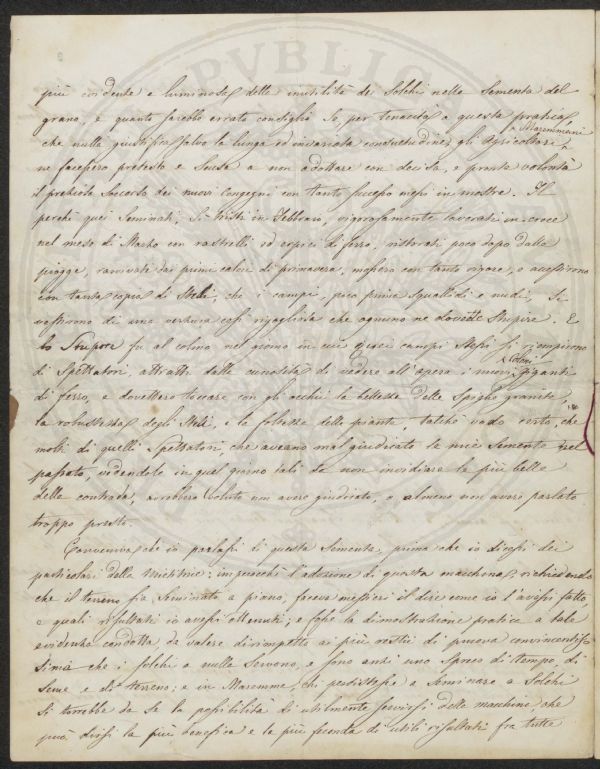 più evidente e luminosa della inutilità dei Solchi nella Sementa del
grano, e quanto sarebbe errato consiglio se per tenacità a questa pratica,
Maremmani
che nulla giustifica salvo la lunga ed invariata consuetudine, gli Agricoltori
ne facessero pretesto e scusa a non adottare con decisa, e pronta volontà
il prezioso Soccorso dei nuovi Congegni con tanto successo messi in mostra. Il
perchè quei Seminati, sì tristi in Febbraio, vigorosamente lavorati in croce
nel mese di Marzo con rastrelli ed erpici di ferro, ristorati poco dopo dalla
pioggia, ravvivati dai primi calori di primavera, mossero con tanto vigore, e
con tanta copia di Steli, che i campi, poco prima squallidi e nudi, si
vestirono di una verzura così rigogliosa che ognuno ne dovette stupire. E
lo Stupore fu al colmo nel giorno in cui quei campi stessi si riempirono
Coloni
di Spettatori attratti dalla curiosità di vedere all'opera i nuovi giganti
di ferro, e dovettero toccare con gli occhi la bellezza delle Spighe granite,
la robustezza degli Steli, e la foltezza delle piante, talchè vado certo, che
molti di quelli Spettatori, che aveano mal giudicato le mie Semente nel
passato, vedendole in quel giorno tali da non invidiare la più bella
della contrada, avrebbero voluto non avere giudicato, o almeno non avere parlato
troppo presto.
Conveniva che io parlassi di questa Sementa, prima che io dicessi dei
particolari della Mietitrice; imperocchè l'adozione di questa macchina, richiedendo
che il terreno sia Seminato a piano, faceva mestieri il dire come io l'avessi fatto,
e quali risultati io avessi ottenuti; e fosse la dimostrazione pratica a tale
evidenza condotta da valere dirimpetto ai più restii di prova convincentis-
sima che i solchi a nulla servono, e sono anzi uno spreco di tempo, di
seme e di terreno; e in Maremma, chi persistesse a Seminare a Solchi
si torrebbe da se la possibilità di utilmente servirsi della macchina, che
può dirsi la più benefica e la più feconda di utili risultati fra tutte